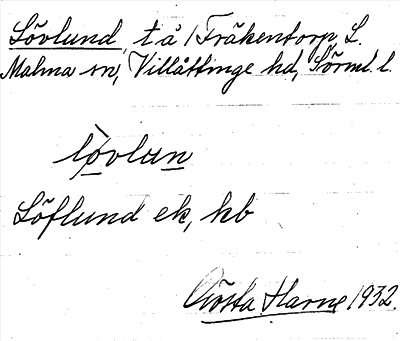 Lövlund, t å 1 Fräkentorp, L.
Malma sn, Villåttinge hd, Sörml. l.
lövlun
Löflund ek, kb
Gösta Harne 1932.